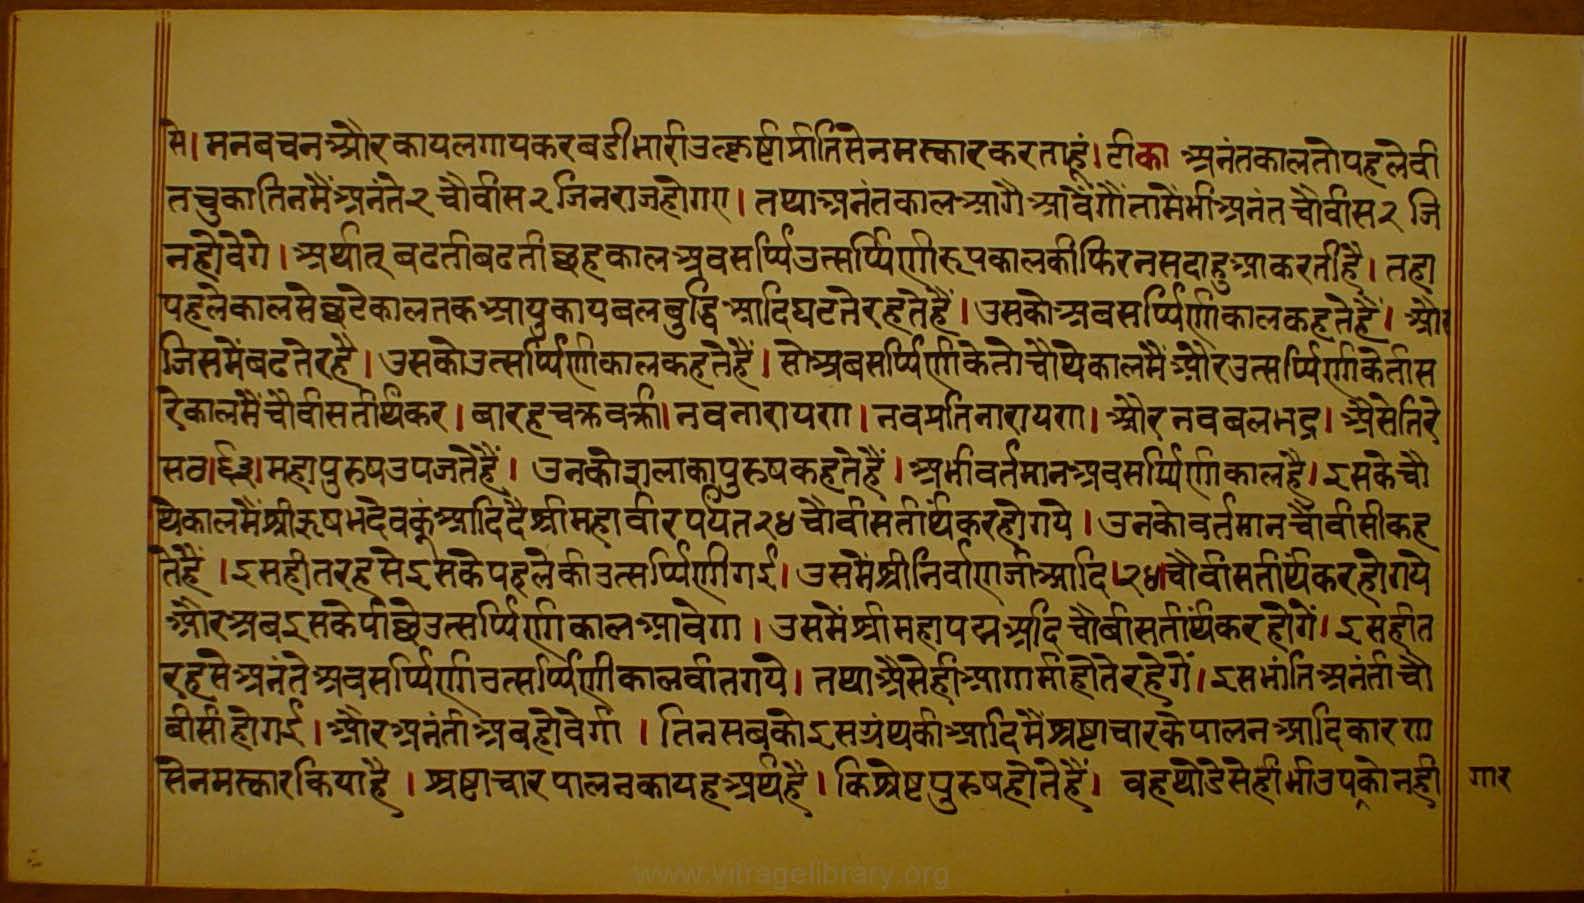 से। मनबचनऔरकायलगायकरबडीभारीउत्कृष्टप्रीतिसेनमस्कारकरताहूं। टीका अनंतकालतोपहलेवी
तचुकातिनमैंअनंते२ चौवीस२ जिनराजहोगए। तथाअनंतकालआगैआवेंगौंतामेंभीअनंतचौवीस२ जि
नहोवेगे। अर्थात् बढतीबढतीछहकालअवसर्प्पिउत्सर्प्पिणीरूपकालकीफिरनसदाहुआकरतीहै। तहा
पहलेकालसेछटेकालतकआयुकायबलबुद्धिआदिघटतेरहतेहैं। उसकोअवसर्प्पिणीकालकहतेहैं। और
जिसमेंबढतेरहै। उसकोउत्सर्प्पिणीकालकहतेहैं। सोअबसर्प्पिणीकेतोचौथेकालमैंऔरउत्सर्प्पिणीकेतीस
रेकालमैंचौवीसतीर्थंकर। बारहचक्रवर्क्ती। नवनारायण। नवप्रतिनारायण। औरनवबलभद्र। अैसेतिरे
सठ।६३।महापुरुषउपजतेहैं। उनकोशलाकापुरुषकहतेहैं। अभीवर्तमानअवसर्प्पिणीकालहै। इसकेचौ
थेकालमैंश्रीऋषभदेवकूंआदिदैश्रीमहावीरपर्यंत२४ चौवीसतीर्थंकरहोगये। उनकोवर्तमानचौवीसीकह
तेहैं। इसहीतरहसेइसकेपहलेकीउत्सर्प्पिणीगई। उसमेंश्रीनिर्वाणजीआदि।२४।चौवीसतीर्थंकरहोगये
औरअबइसकेपीछेउत्सर्प्पिणीकालआवेगा। उसमेंश्रीमहापद्मआदिचौबीसतीर्थंकरहोगें। इसहीत
रहसेअनंतेअवसर्प्पिणीउत्सर्प्पिणीकालवीतगये। तथाअैसेहीआगामीहोतेरहेगें। इसभांतिअनंतीचौ
बीसीहोगई। औरअनंतीअबहोवेगी। तिनसबकोइसग्रंथकीआदिमैंश्रष्टाचारकेपालनआदिकारण
सेनमस्कारकियाहै। श्रष्टाचारपालनकायहअर्थहै। किश्रेष्टपुरुषहोतेहैं। वहथोडेसेहीभीउपकोनही
गार
www.vitragelibrary.org